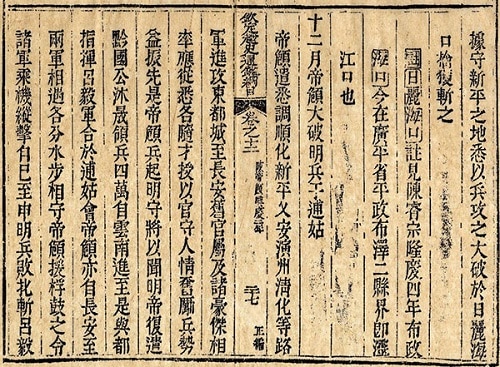 據守新平之地悉以兵攻之大破於日麗海
口擒獲斬之
日麗海口註見陳睿宗隆慶四年布政
海口今在廣平省平政布澤二縣界即
江口也
十二月帝顒大破明兵于逋姑
帝顒遣悉調順化新平乂安演州清化等路
欽定越史通鑑綱目 卷之十二 二十七 正編
軍進攻東都城至長安舊官屬及諸豪傑相
率應從悉各隨才授以官守人情奮勵兵勢
益振先是帝顒兵起明守將以聞明帝復遣
黔國公沐晟領兵四萬自雲南進至是與都
指揮呂毅軍合於逋姑會帝顒亦自長安至
兩軍相遇各分水步相守帝顒援桴鼓之令
諸軍乘機縱擊自巳至申明兵敗北斬呂毅